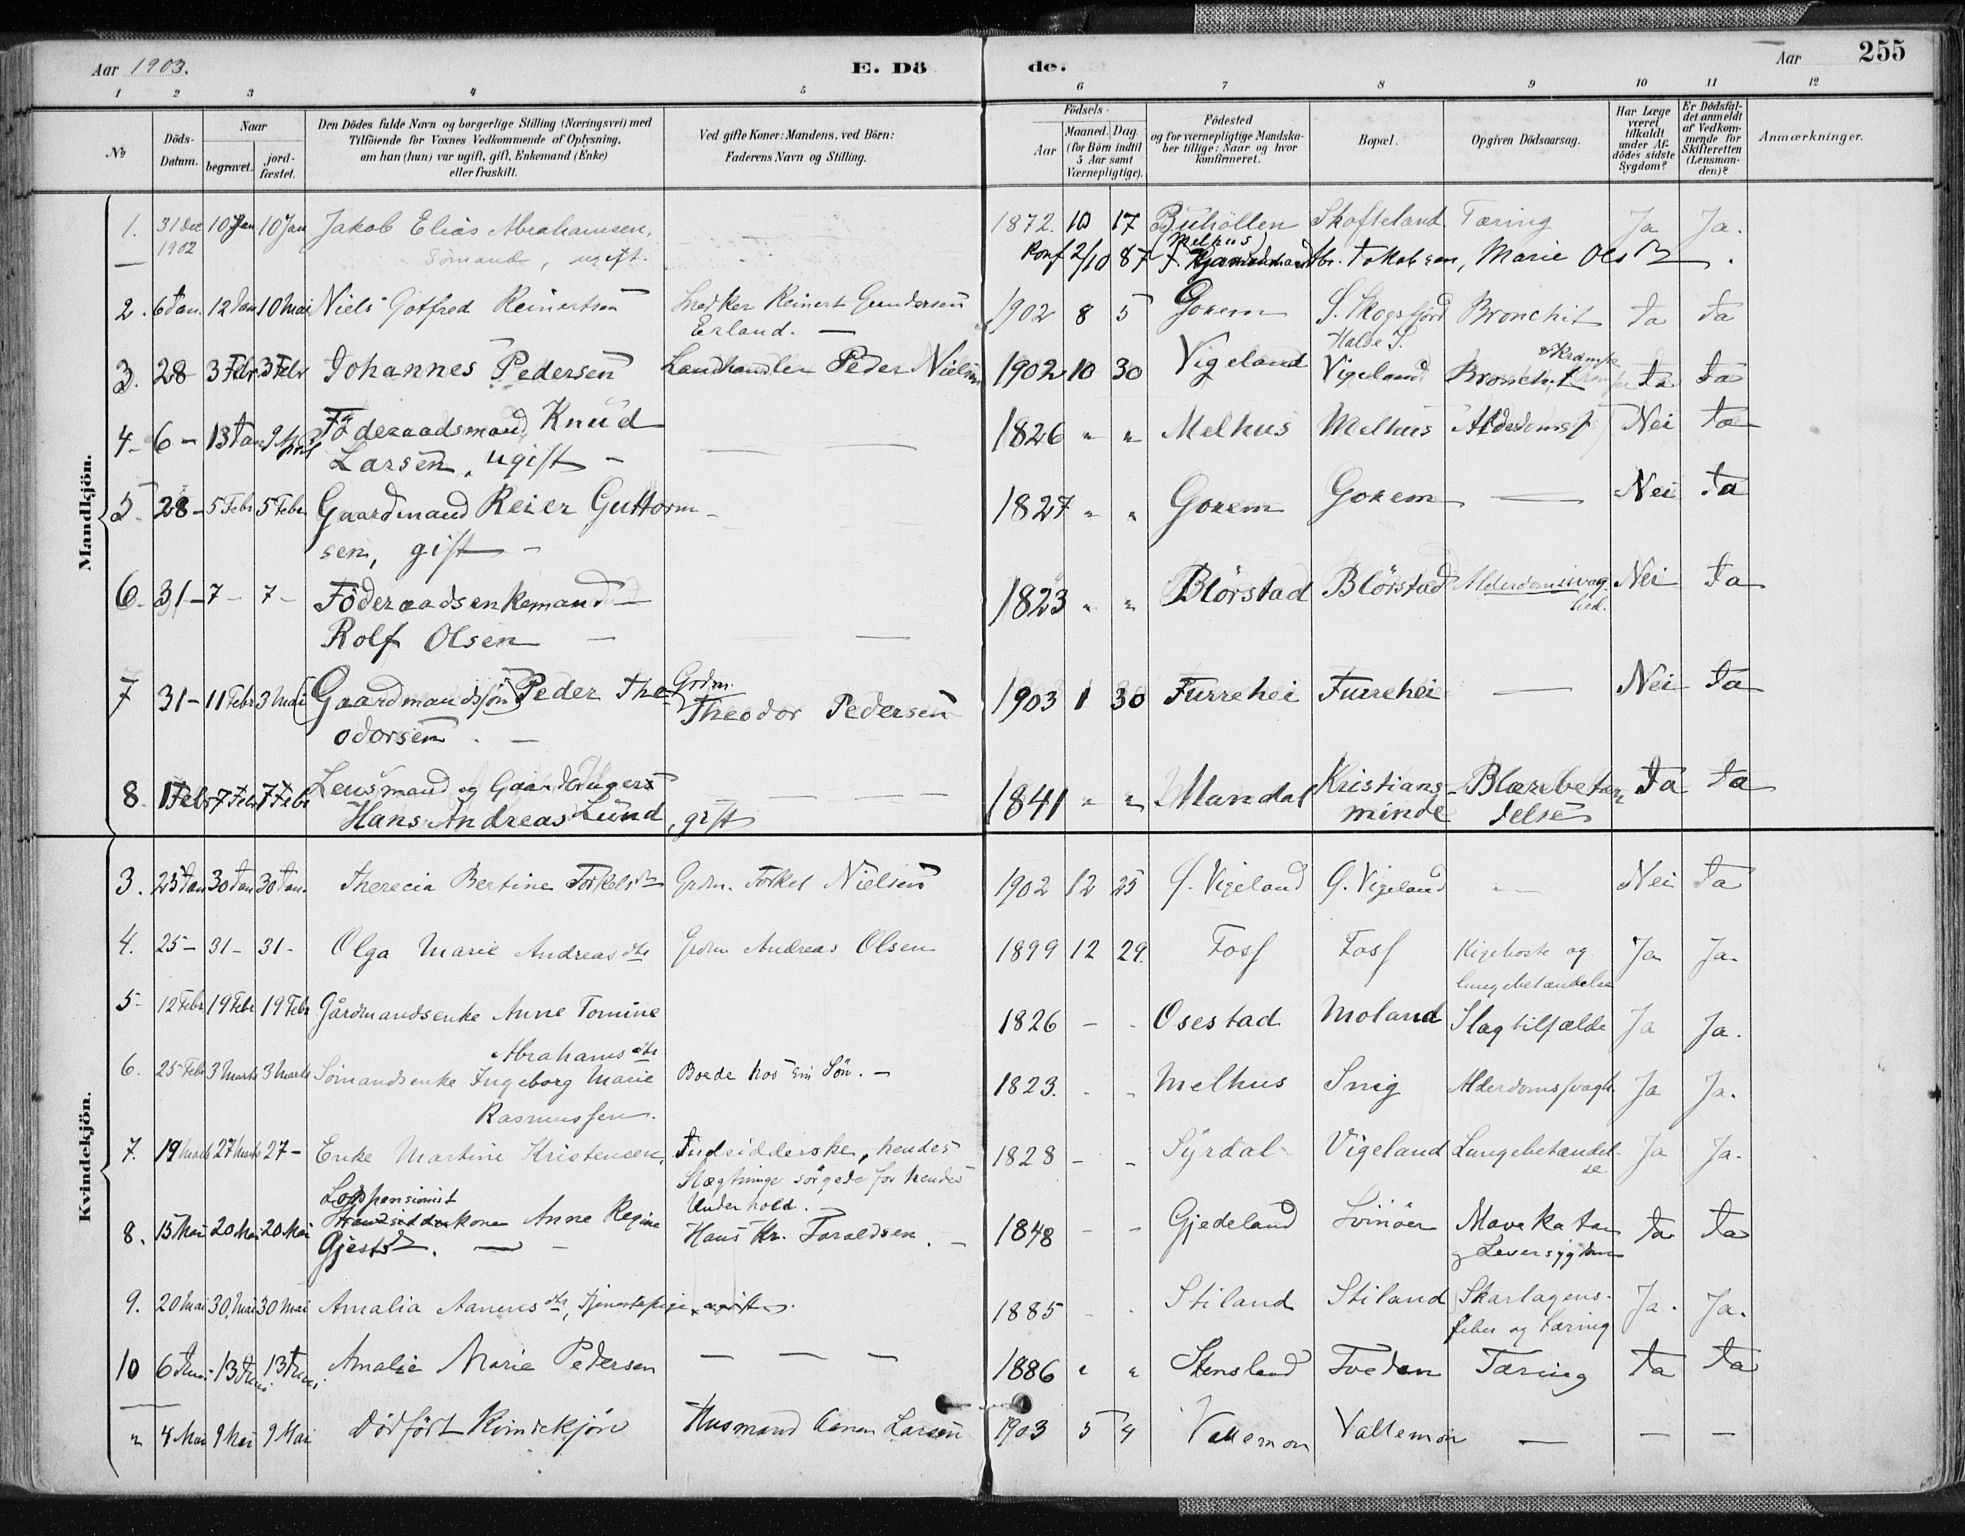 Aar 1903. E. Dö de. Aar 255
1 2 3 4 5 6 7 8 9 10 11 12
No Döds-Datum. Naar begravet. jord-fæstet. Den Dödes fulde Navn og borgerlige Stilling (Næringsvei) med Tilföiende for Voxnes Vedkommende af Oplysning, om han (hun) var ugift, gift, Enkemand (Enke) eller fraskilt. Ved gifte Koner: Mandens, ved Börn: Faderens Navn og Stilling. Födsels- Aar Maaned. Dag. (for Börn indtil 5 Aar samt Værnepligtige). Födested og for værnepligtige Mandskaber tillige: Naar og hvor konfirmeret. Bopæl. Opgiven Dödsaarsag. Har Læge været tilkaldt under Afdödes sidste Sygdom? Er Dödsfaldet anmeldt af Vedkommende for Skifteretten (Lensmanden)? Anmærkninger.
Mandkjön.
1. 31 Dec 10 Jan 10 Jan Jakob Elias Abrahamsen, — 1872. 10 17 Buhöllen Skofteland Tæring Ja Ja.
1902 Sömand, ugift. Konf 2/10 87 (Melhus) Jakobsen, Marie Ols
2. 6 Jan. 12 Jan 10 Mai Niels Gotfred Reinertsen Reinert Gundersen 1902 8 5 Gonem S. Skogsfjord Bronchit Ja Ja
Erland. — Halde S.
3. 28 3 Febr 3 Febr Johannes Pedersen Landhandler Peder Nielsen 1902 10 30 Vigeland Vigeland Bronchit & Krampe Ja Ja
4. 6 — 13 Jan 9 April Föderaadsmand Knud 1826 " " Melhus Melhus Alderdomss Nei Ja
Larsen, ugift — — —
5. 28 — 5 Febr 5 Febr Gaardmand Reier Guttorm- 1827 " " Gonem Gonem — Nei Ja
sen, gift —
6. 31 — 7 — 7 — Föderaadsenkemand — 1823 " " Blörstad Blörstad Alderdomssvag- Nei Ja
Rolf Olsen — — hed.
7 31 — 11 Febr 3 Mai (Gaardmandssön) Peder The- Grdm. 1903 1 30 Furrehei Furrehei — Nei Ja
odorsen. — Theodor Pedersen
8. 1 Febr 7 Febr 7 Febr Lensmand og Gaardbruger — — 1841 " " Mandal Kristians- Blærebetæn- Ja Ja
Hans Andreas Lund, gift minde delse
Kvindekjön.
3. 25 Jan 30 Jan 30 Jan. Therecia Bertine Torkelsdtr Grdm. Torkel Nielsen 1902 12 25 G. Vigeland G. Vigeland — Nei Ja
4. 25 — 31 — 31 — Olga Marie Andreasdtr Grdm Andreas Olsen 1899 12 29. Foss Foss Kigehoste og Ja Ja.
lungebetændelse
5 — 12 Febr 19 Febr 19 Febr Gårdmandsenke Anne Tomine 1826 — - Osestad Moland Slagtilfælde Ja Ja.
Abrahamsdtr
6. 25 Febr 3 Marts 3 Marts Sömandsenke Ingeborg Marie Boede hos Sön. — 1823. - - Melhus Snig Alderdomssvagh. Ja Ja.
Rasmussen.
7. 19 Marts 27 Marts 27 — Enke Martine Kristensen, Indsidderske, hendes 1828 — — Syrdal Vigeland Lungebetændel- Ja Ja.
Slægtninge sörgede for hendes se
Underhold. —
Lodspensionist
8. 15 Mai 20 Mai 20 Mai kone Anne Regine Hans Kr. Taraldsen. — 1848 - - Gjedeland Svinöer Mavekatar Ja Ja
Gjestsd. — — og Leversygdom
9. 20 Mai 30 Mai 30 Mai Amalia Aanensdtr, Tjenestepige, ugift. 1885 - - Stiland Stiland Skarlagens- Ja. Ja.
feber og tæring
10 6 Juni 13 Juni 13 Juni Amalie Marie Pedersen — — — 1886 " " Stensland Tveden Tæring Ja Ja
" 4 Mai 9 Mai 9 Mai Dödfödt Kvindekjön Husmand Aanen Larsen 1903 5 4 Vallemon Vallemon — — —